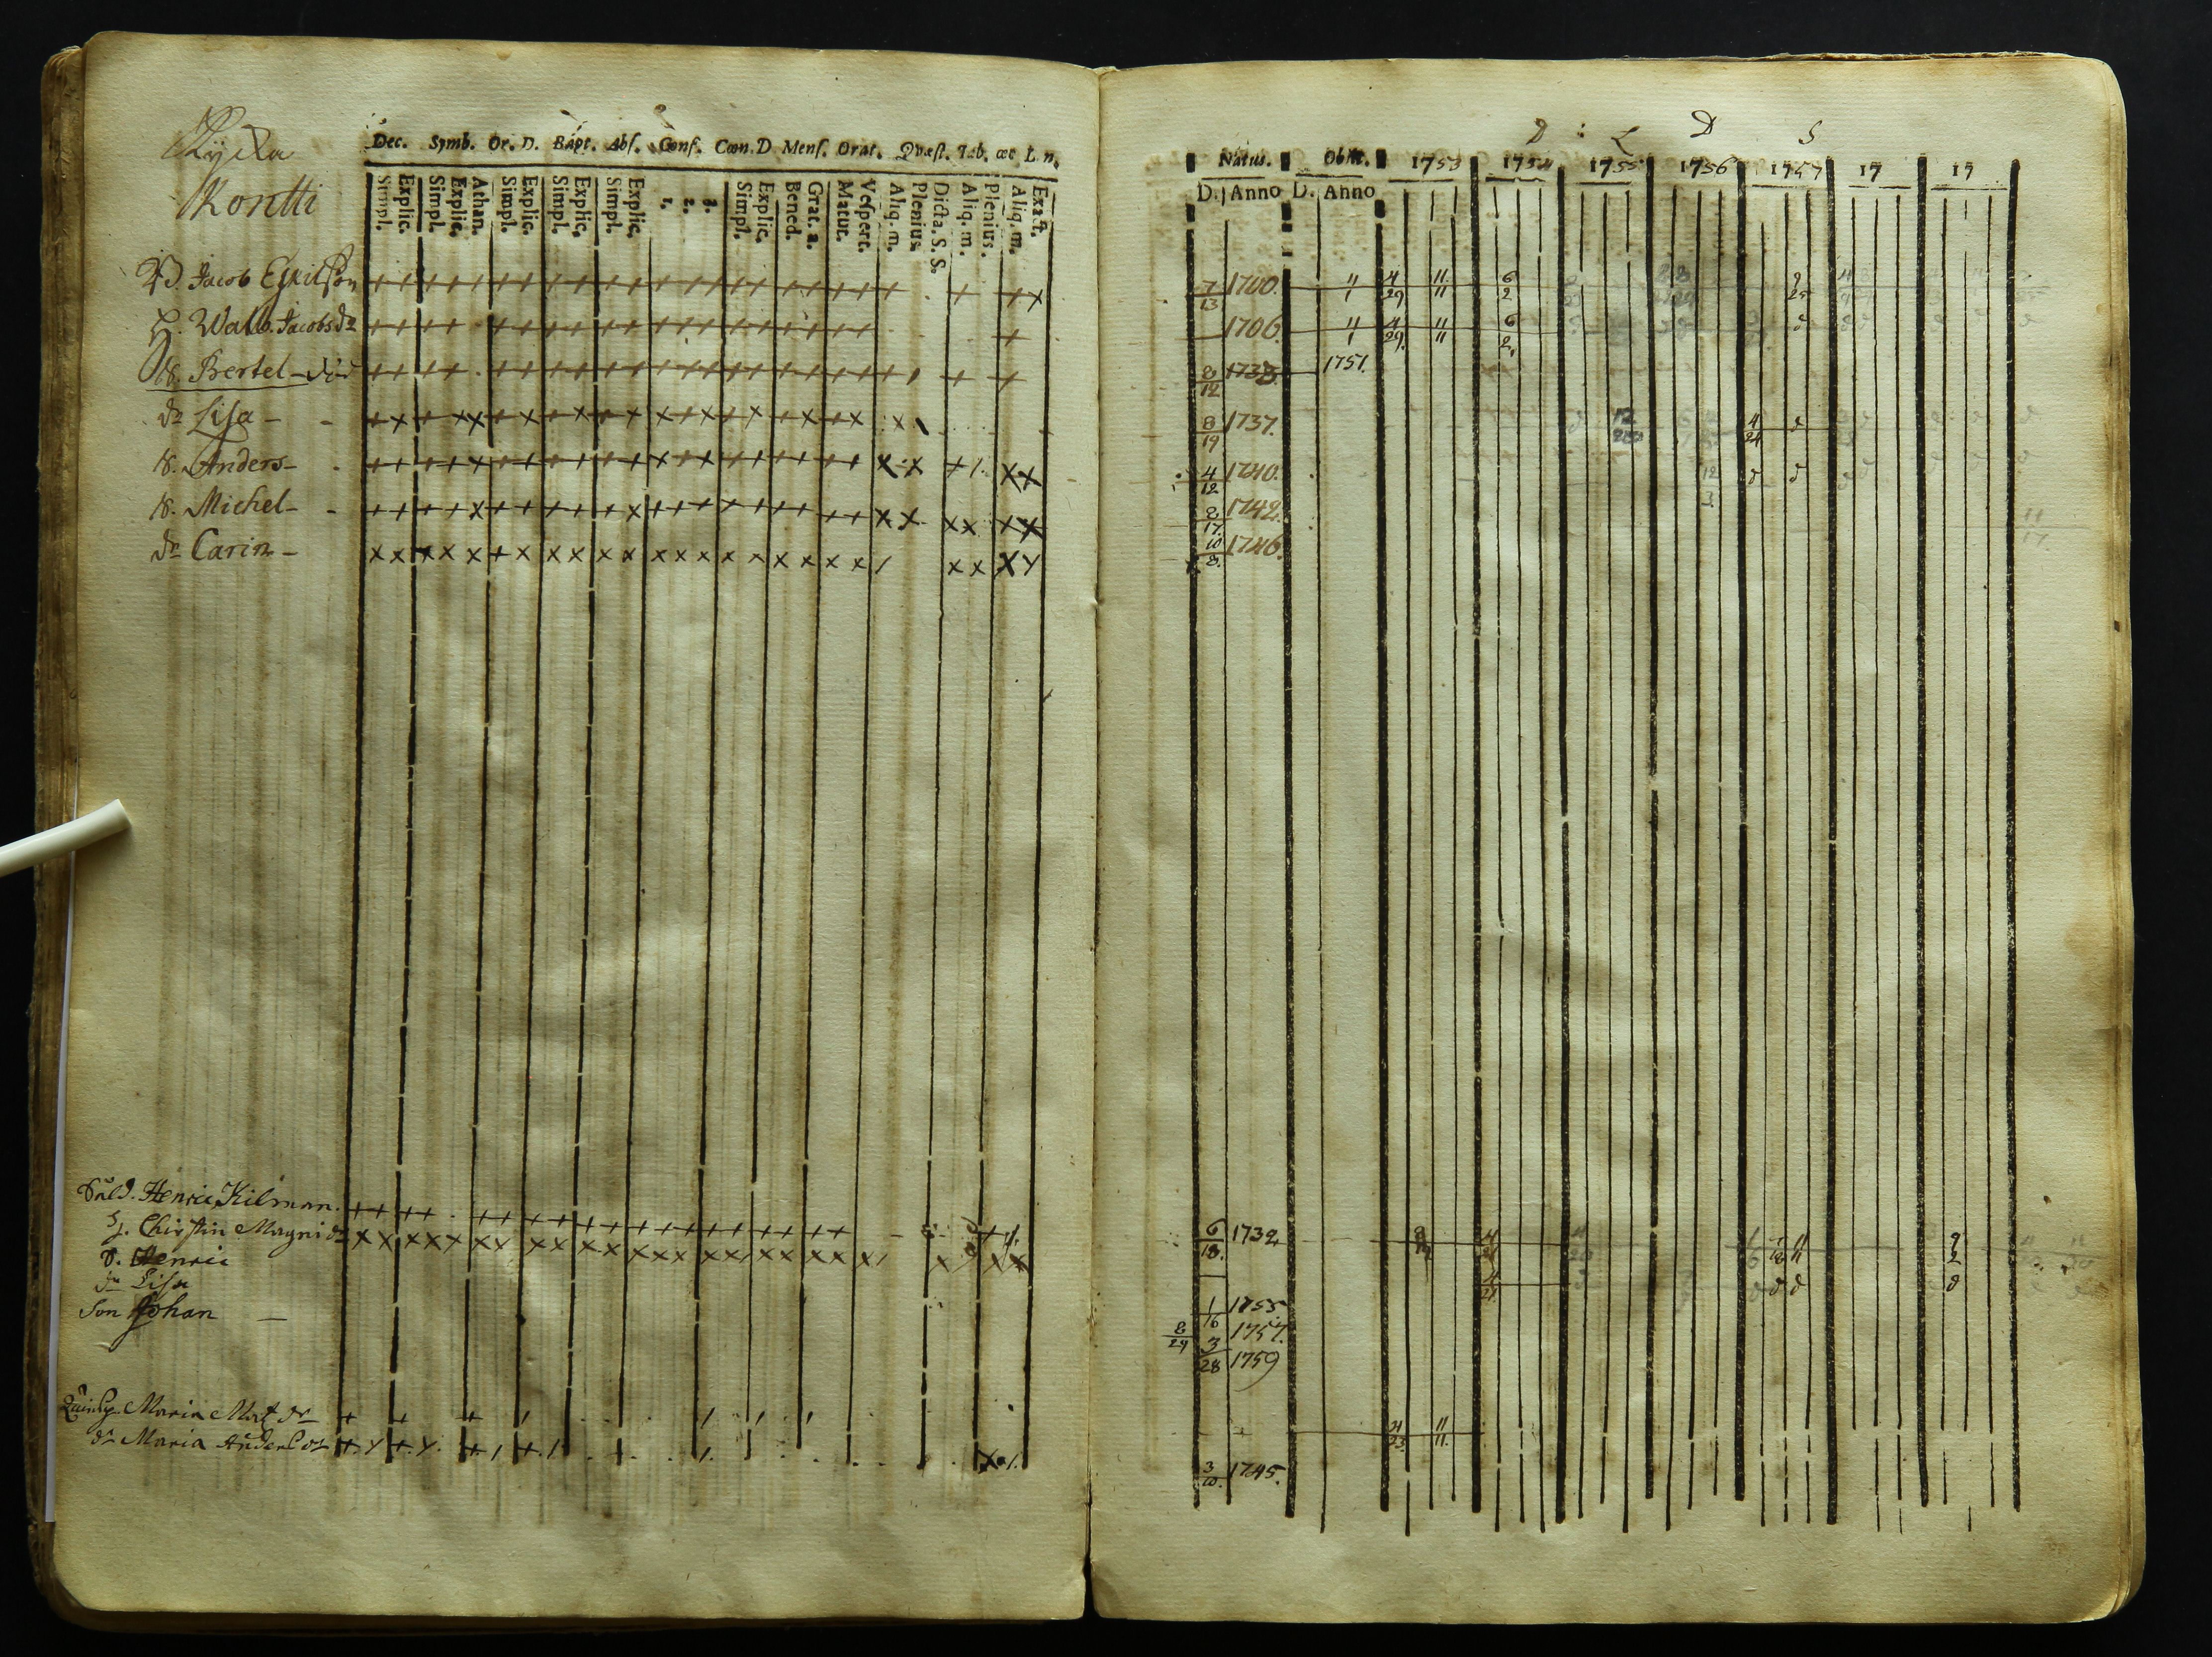 Kycka
Kontti
Dec. Symb. Or. D. Bapt. Abs. Conf. Cœn. D Mens. Orat. Quæst. Tab. œc L. n.
Simpl. Explic. Simpl. Explic. Athan. Simpl. Explic. Simpl. Explic. Simpl. Explic. 1. 2. 3. Simpl. Explic. Bened. Grat. a. Matut. Vespert. Aliq. m. Plenius. Dicta. S. S. Aliq. m. Plenius. Aliq. m. Exact.
Jacob Eskilsson
H. Walb. Jacobsdr
S. Bertel - död
dr Lisa -
S. Anders -
S. Michel -
dr Carin -
Sold. Henric Kilman.
H. Chirstin Magnidr
S. Henric
dr Lisa
Son Johan
Maria Mat dr
dr Maria Andersdr
D : L D S
Natus. Obiit. 1753 1754 1755 1756 1757 17 17
D. Anno D. Anno
7/13 1700. 11/1 4/29 11/11 6/2 9/25
1706. 11/1 4/29 11/11 6/2. d
8/12 1733. 1751.
8/19 1737. 12 4/24 d
4/12 1740. 12 d d
8/17. 1742.
10/8. 1746.
6/18. 1732 4/21 11/11 9/2
4/21 d d d
1/16 1755.
8/29 1757.
3/28 1759
4/23 11/11.
3/10. 1745.